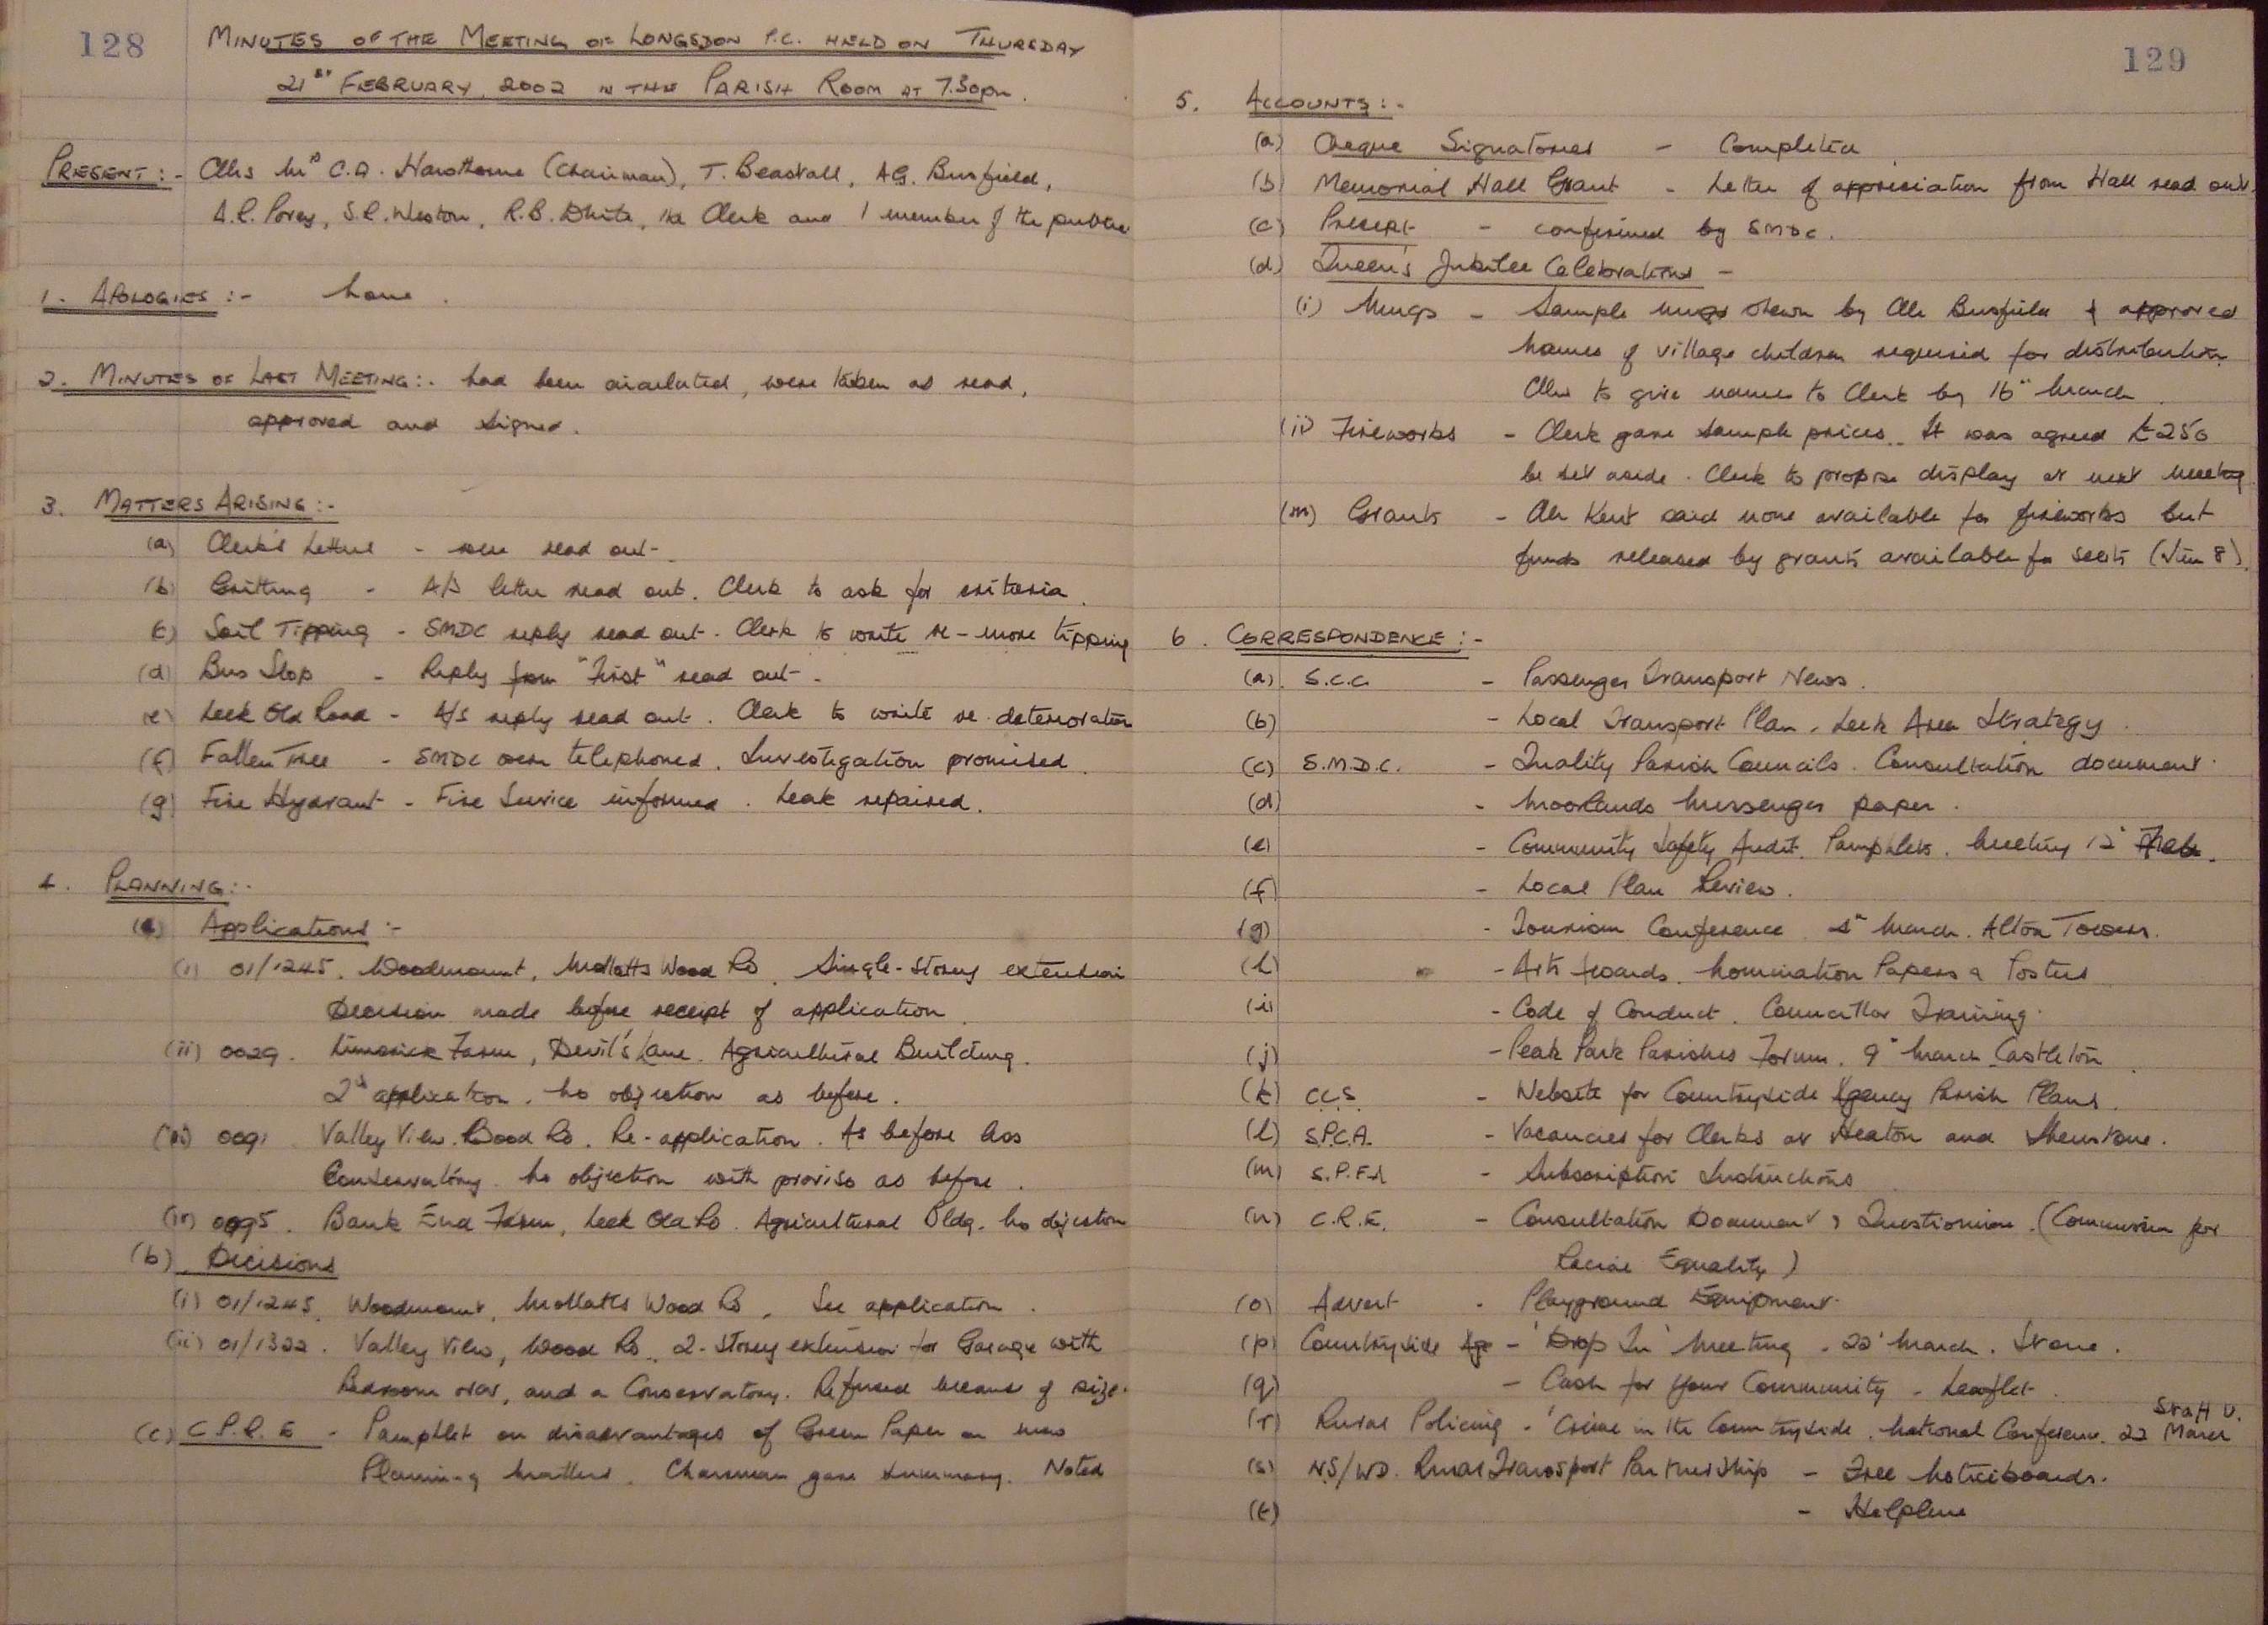 128
MINUTES OF THE MEETING OF LONGSDON P.C. HELD ON THURSDAY
21st FEBRUARY, 2002 IN THE PARISH ROOM AT 7.30pm.
PRESENT :- Cllrs Mrs C.A. Hawthorne (Chairman), T. Beastall, A.G. Busfield,
A.R. Povey, S.R. Weston, R.B. White, the Clerk and 1 member of the public
1. APOLOGIES :- None.
2. MINUTES OF LAST MEETING:- had been circulated, were taken as read,
approved and signed.
3. MATTERS ARISING :-
(a) Clerk's Letters - were read out.
(b) Gritting - A/S letter read out. Clerk to ask for criteria.
(c) Soil Tipping - SMDC reply read out. Clerk to write re-more tipping
(d) Bus Stop - Reply from "First" read out.
(e) Leek Old Road - A/S reply read out. Clerk to write re. deterioration
(f) Fallen Tree - SMDC were telephoned. Investigation promised.
(g) Fire Hydrant - Fire Service informed. Leak repaired.
4. PLANNING:-
(a) Applications :-
(i) 01/1245. Woodmount, Mollatts Wood Rd. Single-Storey extension
Decision made before receipt of application.
(ii) 0029. Limerick Farm, Devil's Lane. Agricultural Building.
2nd application. No objection as before.
(iii) 0091. Valley View. Wood Rd. Re-application. As before less
Conservatory. No objection with proviso as before.
(iv) 0095. Bank End Farm, Leek Old Rd. Agricultural Bldg. No objection
(b) Decisions
(i) 01/1245. Woodmount, Mollatts Wood Rd. See application.
(ii) 01/1322. Valley View, Wood Rd. 2-Storey extension for Garage with
Bedroom over, and a Conservatory. Refused because of size.
(c) C.P.R.E - Pamphlet on disadvantages of Green Paper on new
Planning Matters. Chairman gave summary. Noted
129
5. ACCOUNTS :-
(a) Cheque Signatories - Completed.
(b) Memorial Hall Grant - Letter of appreciation from Hall read out.
(c) Precept - confirmed by SMDC.
(d) Queen's Jubilee Celebrations -
(i) Mugs - Sample mugs shown by Cllr Busfield & approved
Names of village children required for distribution.
Cllrs to give names to Clerk by 16th March.
(ii) Fireworks - Clerk gave sample prices. It was agreed £250
be set aside. Clerk to propose display at next meeting
(iii) Grants - Cllr Kent said none available for fireworks but
funds released by grants available for seats (Item 8).
6. CORRESPONDENCE :-
(a) S.C.C. - Passenger Transport News.
(b) - Local Transport Plan. Leek Area Strategy.
(c) S.M.D.C. - Quality Parish Councils. Consultation document.
(d) - Moorlands Messenger paper.
(e) - Community Safety Audit. Pamphlets. Meeting 12th Feb.
(f) - Local Plan Review.
(g) - Tourism Conference March. Alton Towers.
(h) - Arts Awards. Nomination Papers & Posters
(i) - Code of Conduct. Councillor Training.
(j) - Peak Park Parishes Forum. 9th March Castleton.
(k) C.C.S. - Website for Countryside Agency Parish Plans.
(l) S.P.C.A. - Vacancies for Clerks at Heaton and Shenstone.
(m) S.P.F.A - Subscription Instructions
(n) C.R.E. - Consultation Document & Questionaire. (Commission for
Racial Equality)
(o) Advert - Playground Equipment.
(p) Countryside Ag - 'Drop In' Meeting. 22nd March. Stone.
(q) - Cash for your Community - Leaflet.
(r) Rural Policing - 'Crime in the Countryside. National Conference. 22 March Staff U.
(s) N.S/WD. Rural Transport Partnership - Free Noticeboards.
(t) - Helpline